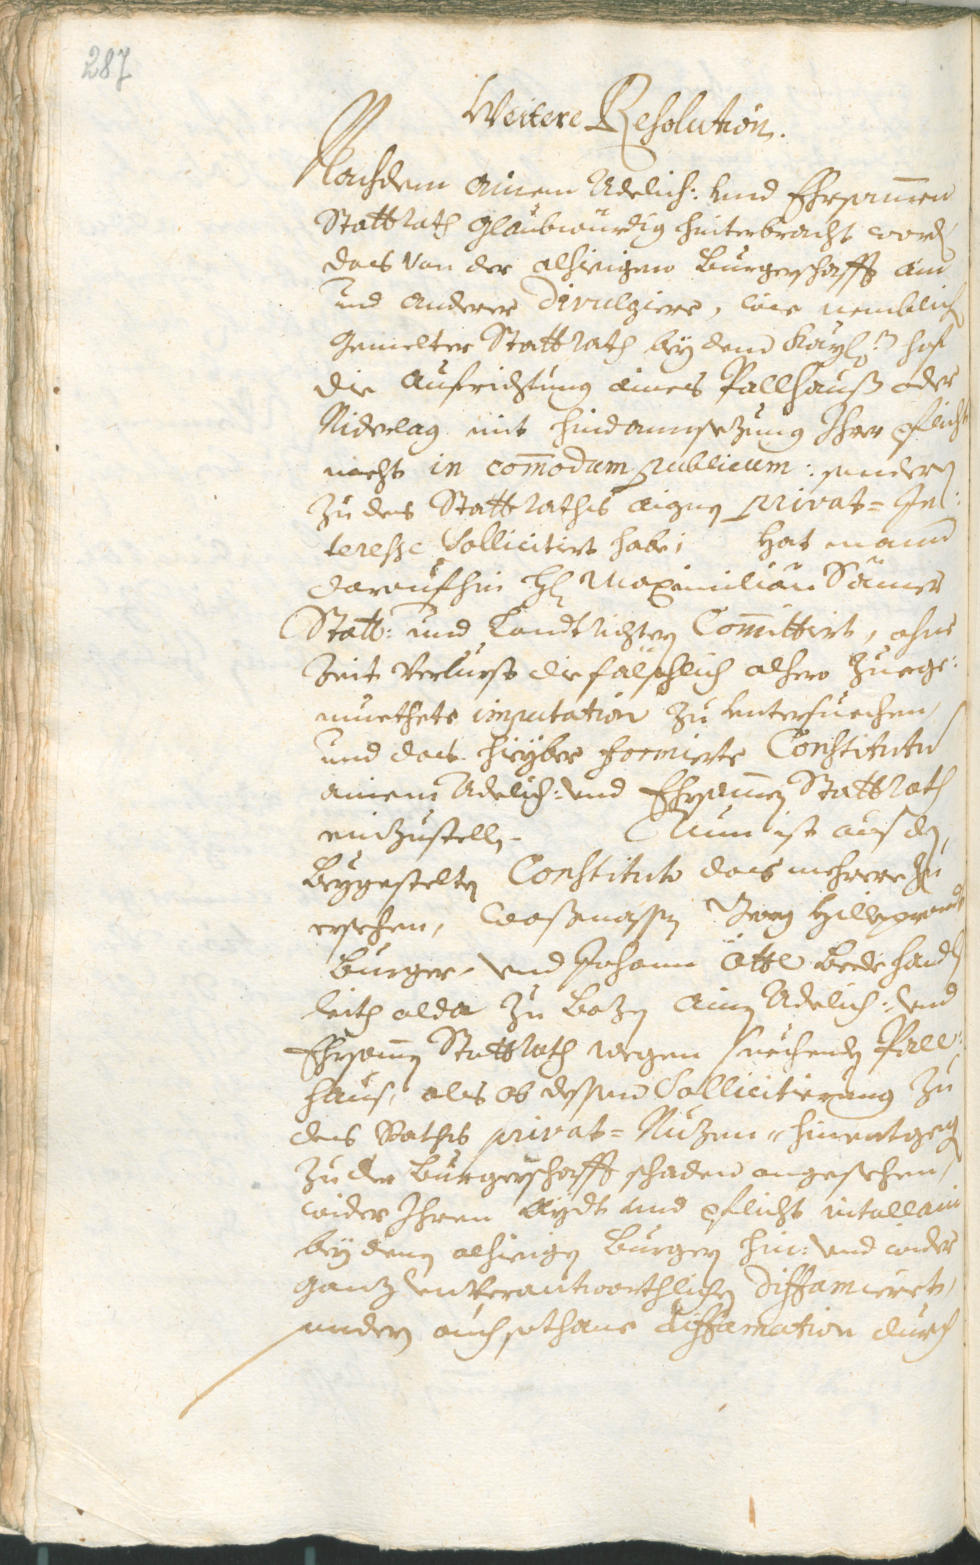 287
Weitere Resolution.
Nachdem ainem Adelich: und Ehrsammen
Stattrath glaubwürdig hinterbracht word
das von der alhieigen Burgerschafft ain
und anderer divulgiere, wie nemblich
gemelter Stattrath bey dem Kayl: hof
die Aufrichtung aines Pallhauß oder
Niderlag mit hindannsezung Ihrer pflicht
nicht in com̄odum publicum: sonder
zu des Stattraths aignen privat= In:
teresse Sollicitirt habe; Hat mann
daraufhin H: Maximilian
Statt: und Landtrichter Com̄ittirt, ohne
Zeit Verlurst die fälschlich alhero zuege:
muethete imputation zu untersuechen,
und das hieyber formierte Constitutum
ainem Adelich: und Ehrsamen Stattrath
einzustellen. Nun ist aus den
beygestelten Constituto das mehrere zu
ersehen, wasmassen Georg
Burger, und Johann beede handls
leith alda zu Bozen ainen Adelich: und
Ehrsamen Stattrath wegen suechenden Pall:
haus, als ob dessen Sollicitierung zu
des Raths privat= Nuzen, hinentgegen
zu der Burgerschafft schaden angesehen,
wider Ihren Aydt und pflicht nit allain
bey denen alhieigen Burgern hin: und wider
ganz unverantworthlichen diffamieret,
sondern auch sothane diffamation durch